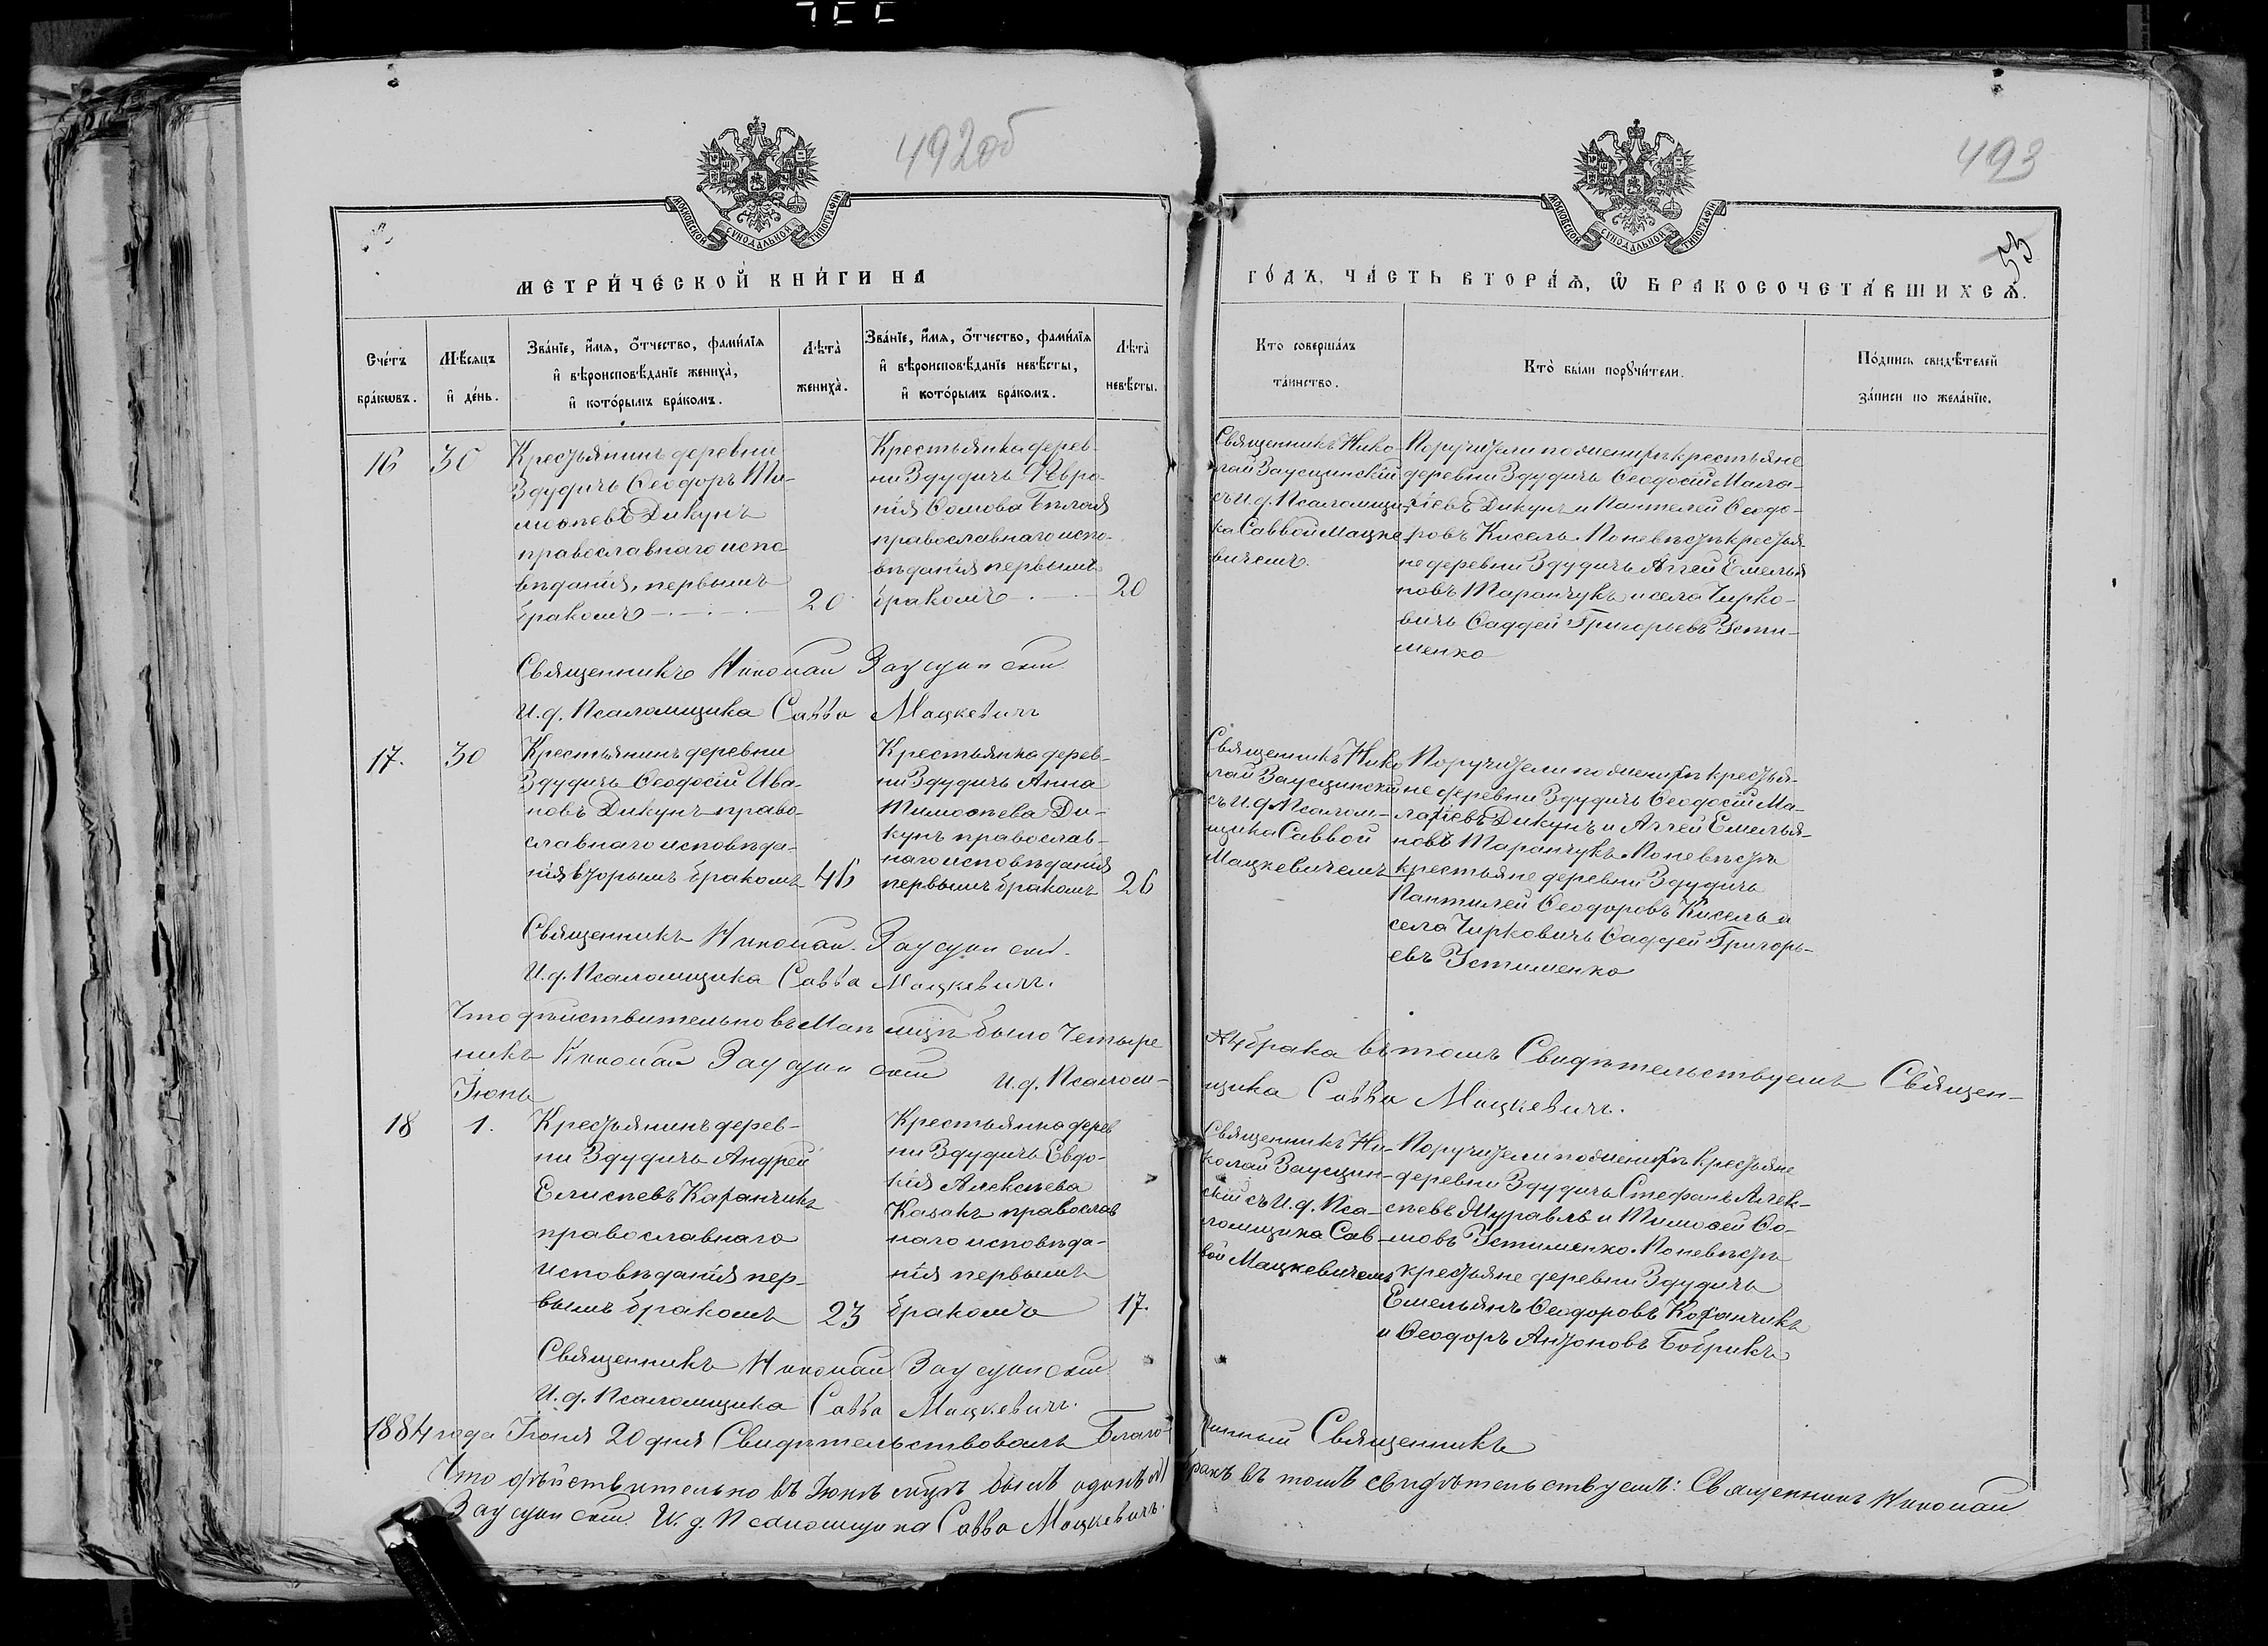 492об
493
53
МОСКОВСКОЙ СѴНОДАЛЬНОЙ ТИПОГРАФІИ
МОСКОВСКОЙ СѴНОДАЛЬНОЙ ТИПОГРАФІИ
МЕТРИ́ЧЕСКОЙ КНИ́ГИ НА
ГО́ДЪ, ЧА́СТЬ ВТОРА́Ѧ, Ѿ БРАКОСОЧЕТА́ВШИХСѦ.
Сче́тъ бра́кѡвъ.
Мѣ́сяцъ и҆ де́нь.
Зва́нїе, и҆́мѧ, ѻ҆́тчество, фами́лїѧ
и҆ вѣроисповѣ́данїе жениха̀,
и҆ кото́рымъ бра́комъ.
Лѣта̀ жениха̀.
Зва́нїе, и҆́мѧ, ѻ҆́тчество, фами́лїѧ
и҆ вѣроисповѣ́данїе невѣ́сты,
и҆ кото́рымъ бра́комъ.
Лѣта̀ невѣ́сты.
Кто̀ соверша́лъ
та́инство.
Кто̀ бы́ли порꙋчи́тели.
По́дпись свидѣ́телей
за́писи по жела́нїю.
16
30
Крестьянинъ деревни
Здудичъ Ѳеодоръ Ти-
моѳеевъ Дикунъ
православнаго испо-
вѣданія, первымъ
бракомъ
20
Крестьянка дерев-
ни Здудичъ Февро-
нія Ѳомова Бѣлая
православнаго испо-
вѣданія первымъ
бракомъ
20
Священникъ Нико-
лай Заусцинскій
съ И.д. Псаломщи-
ка Саввой Мацке-
вичемъ.
Поручители по женихѣ крестьяне
деревни Здудичъ Ѳеодосій Мала-
хіевъ Дикунъ и Пантелей Ѳеодо-
ровъ Кисель. По невѣстѣ крестья-
не деревни Здудичъ Аггей Емелья
новъ Таранчукъ и села Чирко-
вичъ Ѳаддей Григорьевъ Усти-
менко
Священникъ Николай Заусцинскій
И.д. Псаломщика Савва Мацкевичъ
17.
30
Крестьянинъ деревни
Здудичъ Ѳеодосій Ива-
новъ Дикунъ право-
славнаго исповѣда-
нія вторымъ бракомъ
46
Крестьянка дерев-
ни Здудичъ Анна
Тимоѳеева Ди-
кунъ православ-
наго исповѣданія
первымъ бракомъ
26
Священникъ Нико
лай Заусцинскій
съ И.д. Псалом-
щика Саввой
Мацкевичемъ
Поручители по женихѣ крестья-
не деревни Здудичъ Ѳеодосій Ма-
лахіевъ Дикунъ и Аггей Емелья-
новъ Таранчукъ. По невѣстѣ
крестьяне деревни Здудичъ
Пантилей Ѳеодоровъ Кисель и
села Чирковичъ Ѳаддей Григорь-
евъ Устименко
Священникъ Николай Заусцинскій.
И.д. Псаломщика Савва Мацкевичъ.
Что дѣйствительно въ Маѣ мцѣ было четыре
4 брака въ томъ Свидѣтельствуемъ Священ-
никъ Николай Заусцинскій И.д. Псалом-
щика Савва Мацкевичъ.
Іюнь
18
1.
Крестьянинъ дерев-
ни Здудичъ Андрей
Елисѣевъ Каранчикъ
православнаго
исповѣданія пер-
вымъ бракомъ
23
Крестьянка дерев
ни Здудичъ Евдо-
кія Алексѣева
Казакъ православ
наго исповѣда-
нія первымъ
бракомъ
17.
Священникъ Ни-
колай Заусцин-
скій съ И.д. Пса-
ломщика Сав-
вой Мацкевичемъ
Поручители по женихѣ крестьяне
деревни Здудичъ Стефанъ Алек-
сѣевъ Муравль и Тимоѳей Ѳо-
мовъ Устименко. По невѣстѣ
крестьяне деревни Здудичъ
Емельянъ Ѳеодоровъ Коранчикъ
и Ѳеодоръ Антоновъ Бобрикъ
Священникъ Николай Заусцинскій
И.д. Псаломщика Савва Мацкевичъ.
1884 года Іюня 20 дня Свидѣтельствовалъ Благо-
чинный Священникъ
Что дѣйствительно въ Іюнѣ мцѣ былъ одинъ
бракъ въ томъ свидѣтельствуемъ: Священникъ Николай
Заусцинскій. И.д. Псаломщика Савва Мацкевичъ.